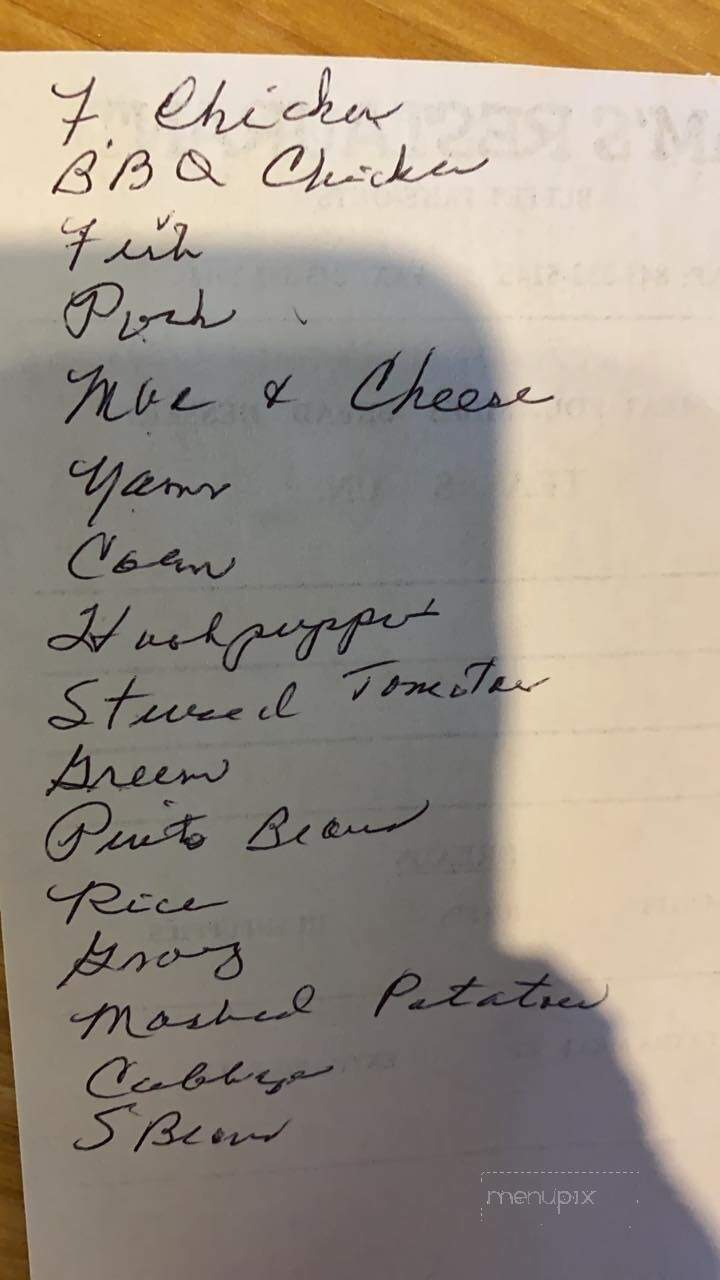 F. Chicken
BBQ Chicken
Fish
Pork
Mac & Cheese
Yams
Corn
Hushpuppies
Stewed Tomatoes
Greens
Pinto Beans
Rice
Gravy
Mashed Potatoes
Cabbage
S Beans
menupix